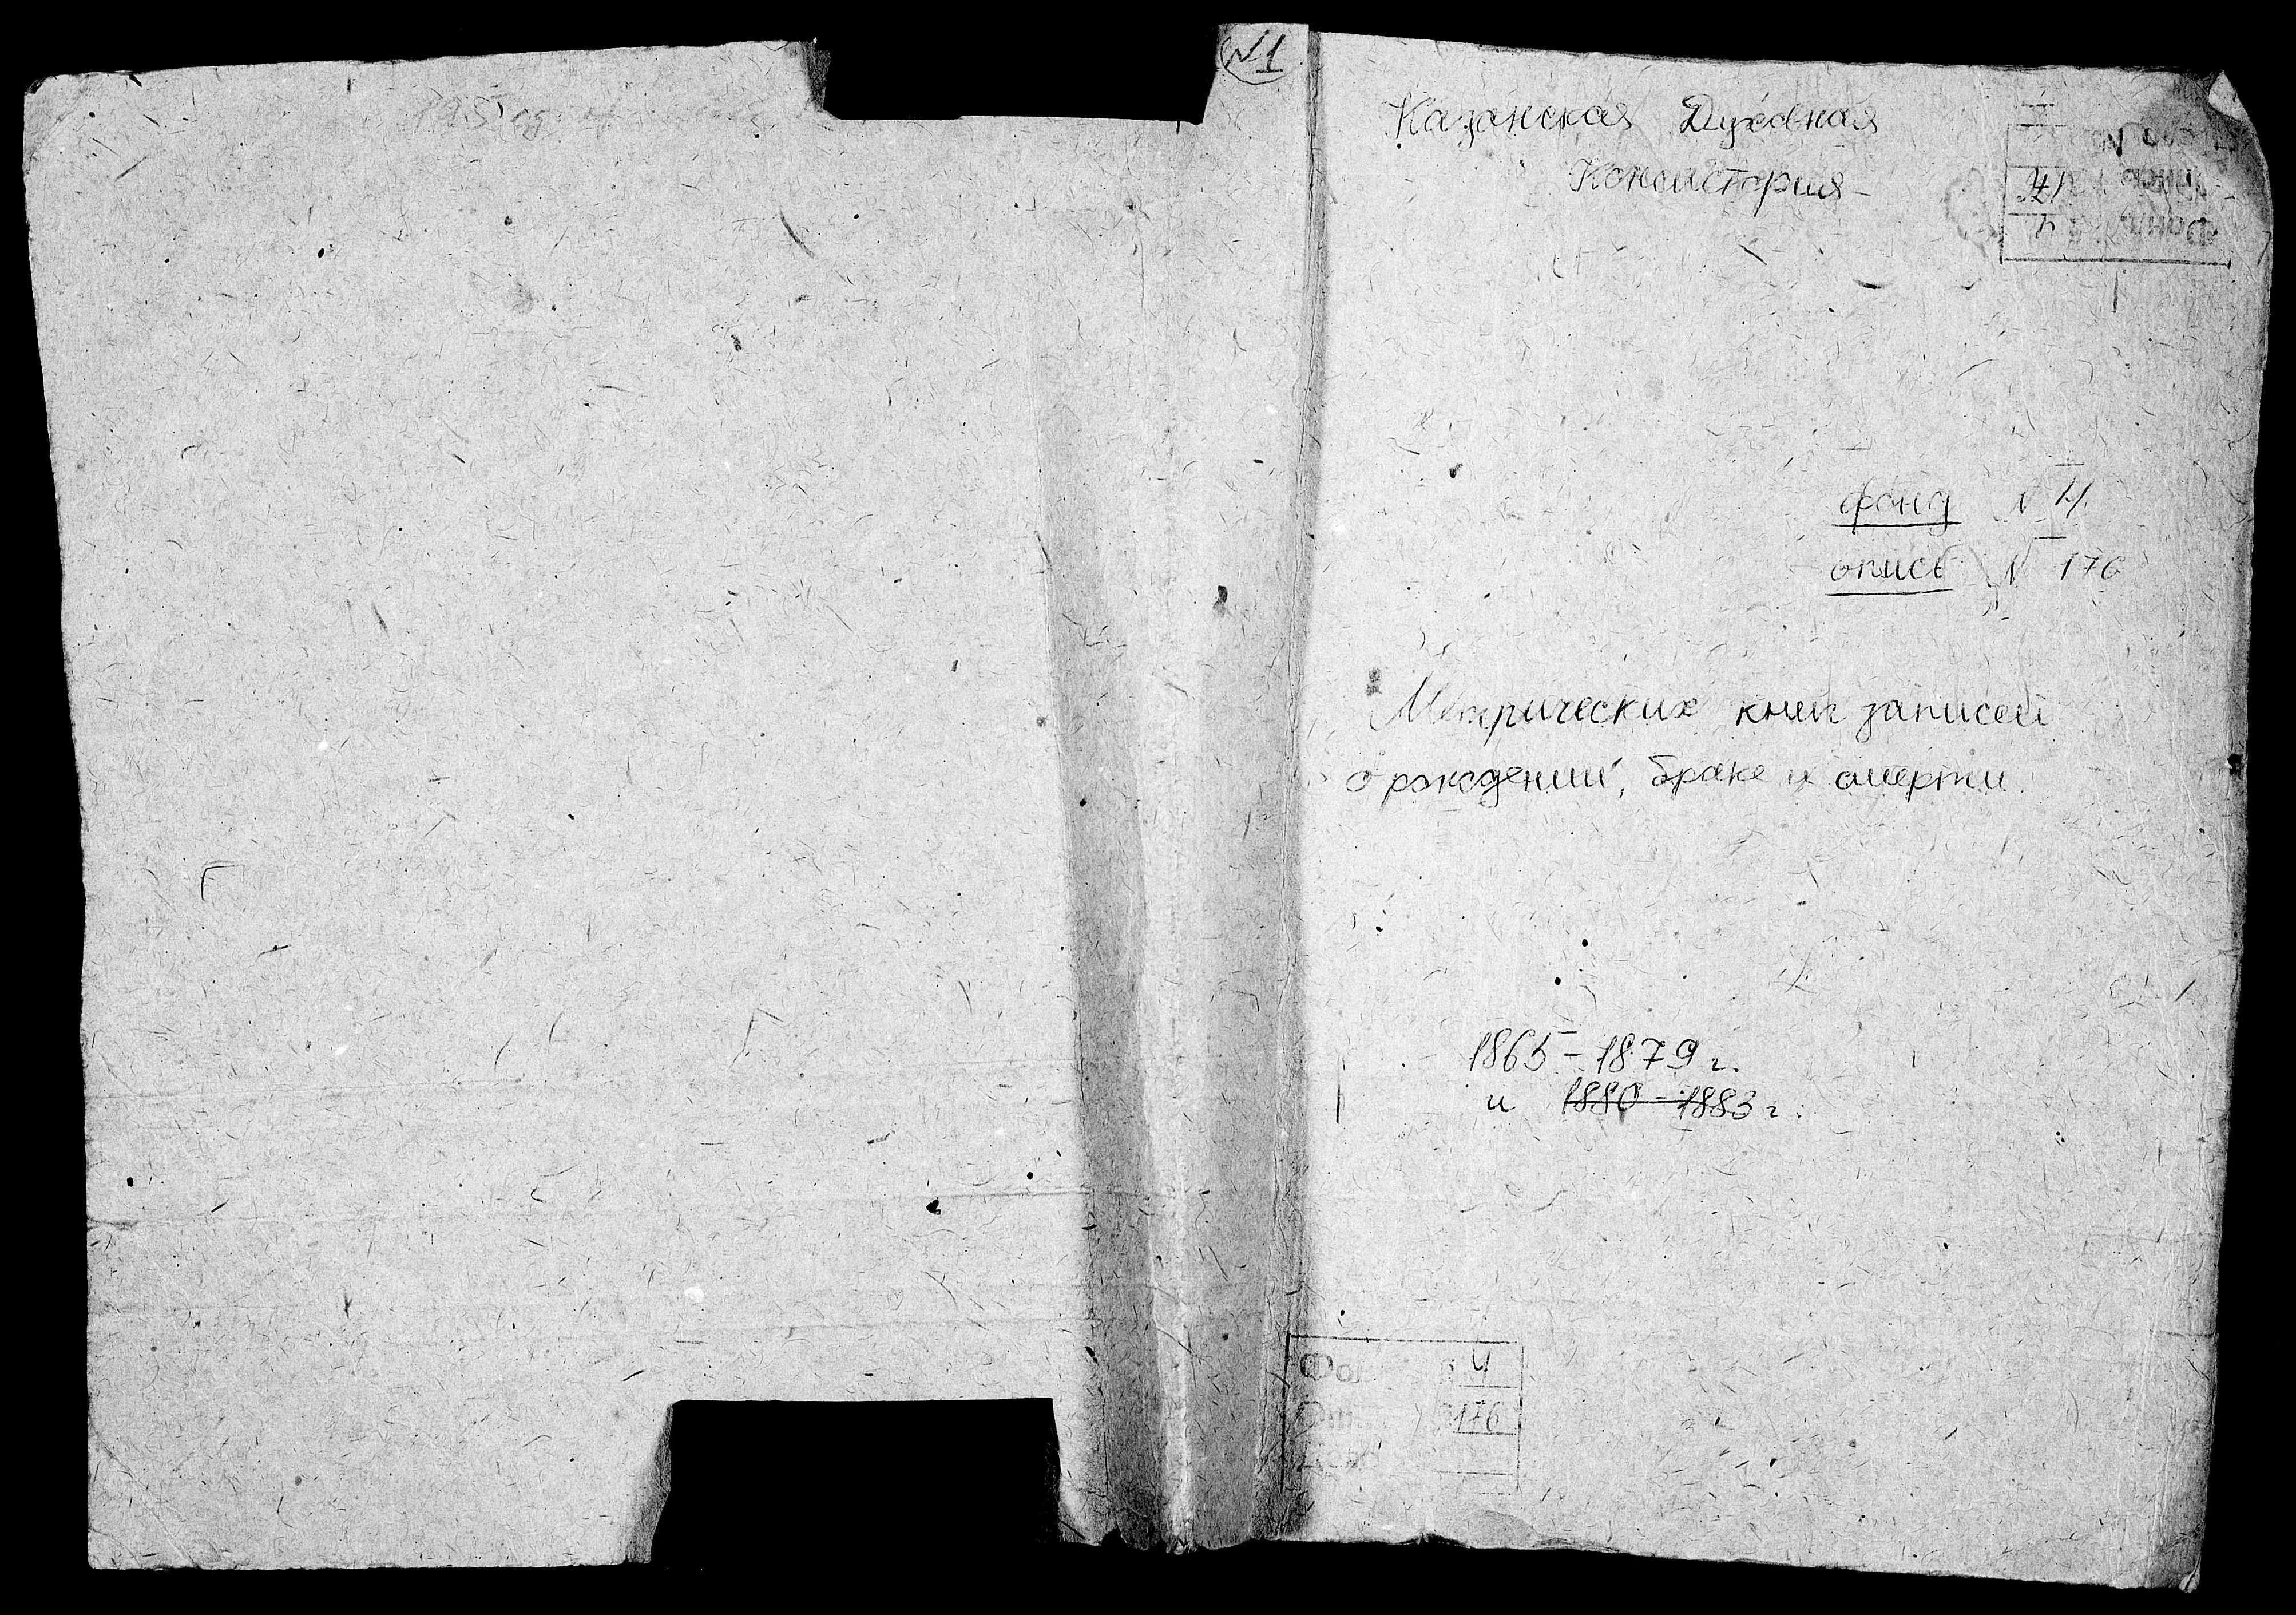 №1
Казанская Духовная
Консистория
фонд № 4
опись № 176
Метрических книг записей
о рождений, браке и смерти.
1865-1879 г.
и 1880-1883 г.
4
176